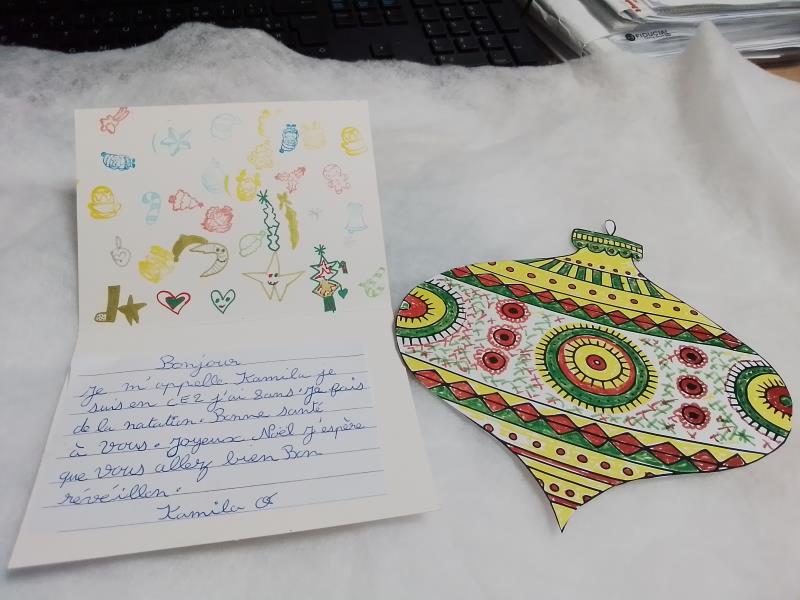 FIDUCIAL
Bonjour
Je m'appelle Kamila je
suis en CE2 j'ai 8 ans. Je fais
de la natation. Bonne santé
à vous. Joyeux Noël J'espère
que vous allez bien Bon
réveillon.
Kamila